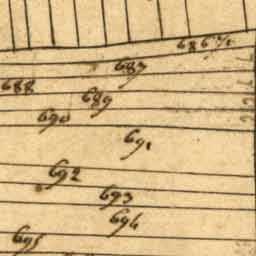 686 1/2
687
688
689
690
691
692
693
694
695